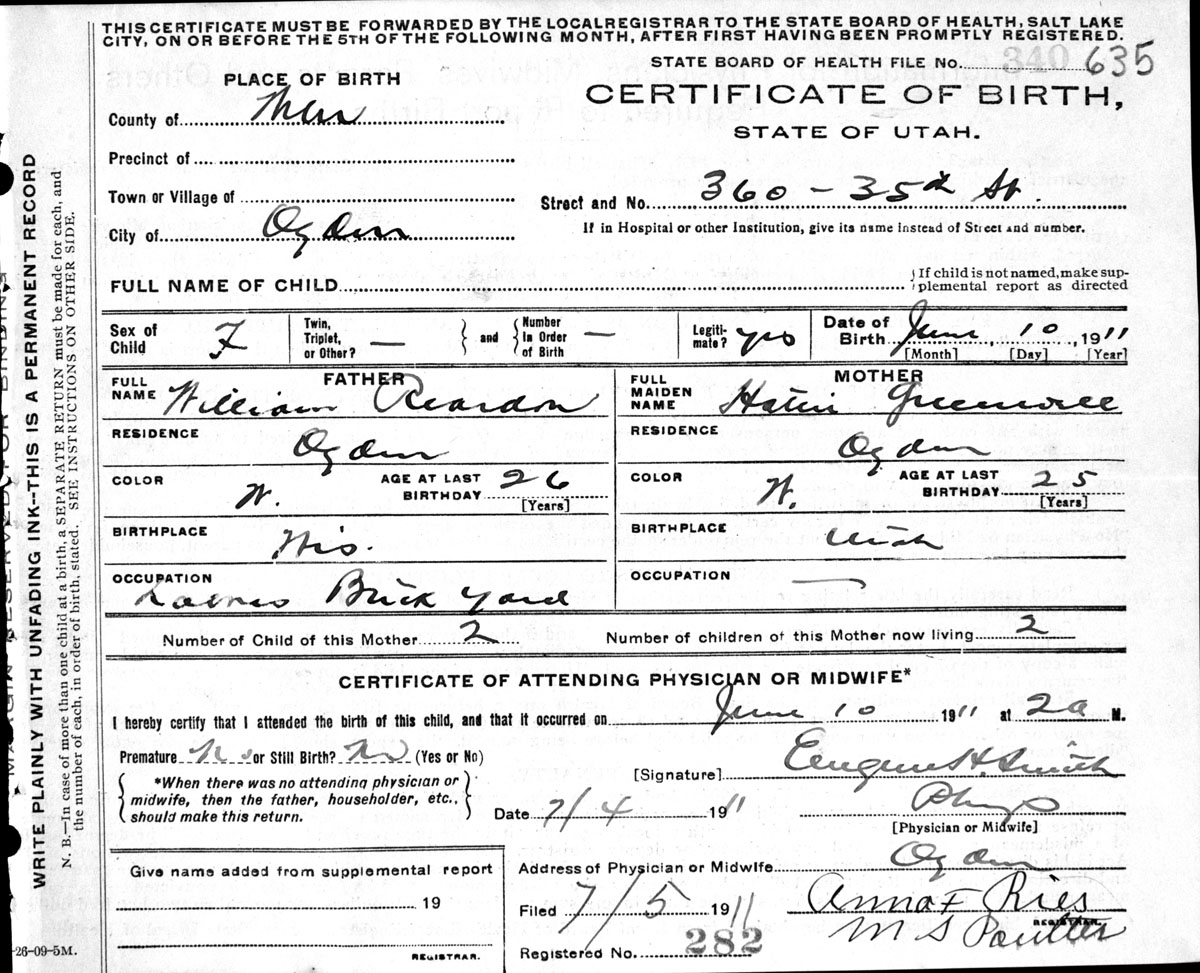 THIS CERTIFICATE MUST BE FORWARDED BY THE LOCAL REGISTRAR TO THE STATE BOARD OF HEALTH, SALT LAKE
CITY, ON OR BEFORE THE 5TH OF THE FOLLOWING MONTH, AFTER FIRST HAVING BEEN PROMPTLY REGISTERED.
STATE BOARD OF HEALTH FILE NO. 340 635
PLACE OF BIRTH
CERTIFICATE OF BIRTH,
STATE OF UTAH.
County of
Precinct of
Town or Village of
Street and No. 360 - 35th St.
City of Ogden
If in Hospital or other Institution, give its name instead of Street and number.
FULL NAME OF CHILD
If child is not named, make sup-
plemental report as directed
Sex of Child F
Twin, Triplet, or Other? —
and
Number In Order of Birth —
Legiti- mate? yes
Date of Birth June 10, 1911
[Month] [Day] [Year]
FATHER
FULL NAME William Reardon
RESIDENCE Ogden
COLOR W.
AGE AT LAST BIRTHDAY 26
[Years]
BIRTHPLACE Wis.
OCCUPATION Brick Yard
MOTHER
FULL MAIDEN NAME Hattie
RESIDENCE Ogden
COLOR W.
AGE AT LAST BIRTHDAY 25
[Years]
BIRTHPLACE Utah
OCCUPATION —
Number of Child of this Mother 2
Number of children of this Mother now living 2
CERTIFICATE OF ATTENDING PHYSICIAN OR MIDWIFE*
I hereby certify that I attended the birth of this child, and that it occurred on June 10 1911 at 2a M.
Premature No or Still Birth? No (Yes or No)
*When there was no attending physician or
midwife, then the father, householder, etc.,
should make this return.
[Signature] Eugene H. Smith
Date 7/4 1911
Phys
[Physician or Midwife]
Give name added from supplemental report
19
REGISTRAR.
Address of Physician or Midwife Ogden
Filed 7/5 1911
Anna F Ries
REGISTRAR.
M S Poulter
Registered No. 282
26-09-5M.
MARGIN RESERVED FOR BINDING
WRITE PLAINLY WITH UNFADING INK--THIS IS A PERMANENT RECORD
N. B.—In case of more than one child at a birth, a SEPARATE RETURN must be made for each, and
the number of each, in order of birth, stated. SEE INSTRUCTIONS ON OTHER SIDE.